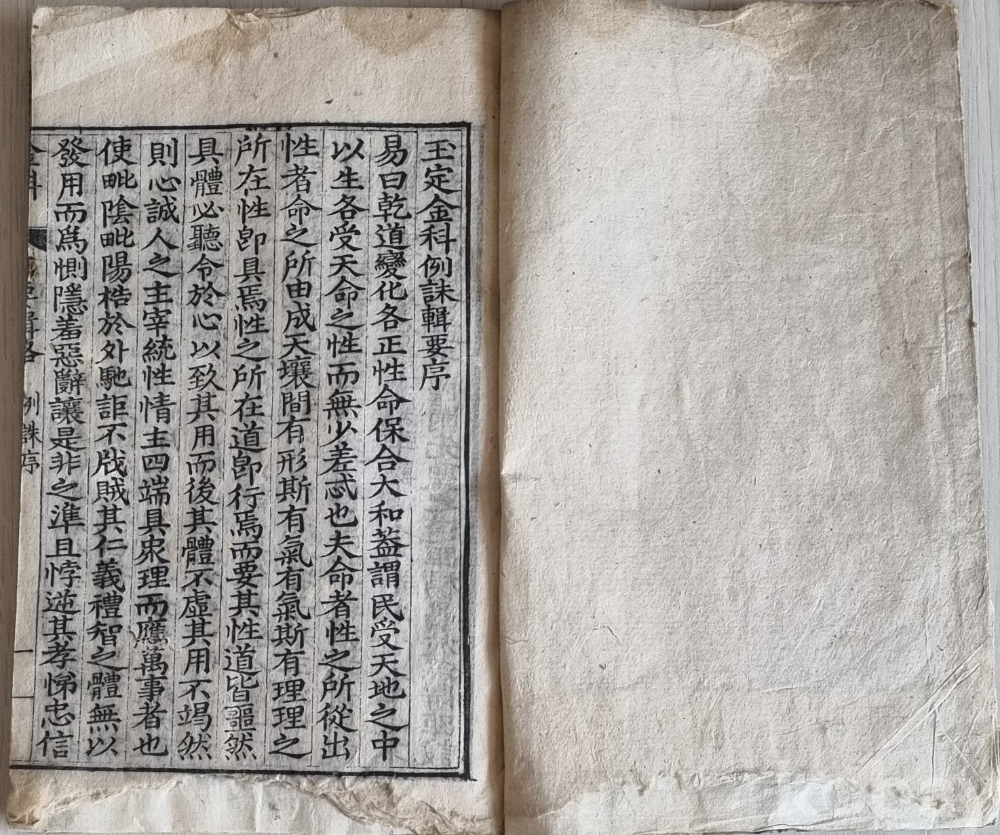 玉定金科例誅輯要序
易曰乾道變化各正性命保合大和葢謂民受天地之中
以生各受天命之性而無少差忒也夫命者性之所從出
性者命之所由成天壤間有形斯有氣有氣斯有理理之
所在性卽具焉性之所在道卽行焉而要其性道皆
然
具體必聽令於心以致其用而後其體不虛其用不竭然
則心誠人之主宰統性情主四端具衆理而應萬事者也
使毗陰毗陽梏於外馳詎不戕賊其仁義禮智之體無以
發用而爲惻隱羞惡辭讓是非之準且悖逆其孝悌忠信
金科
例誅序
一